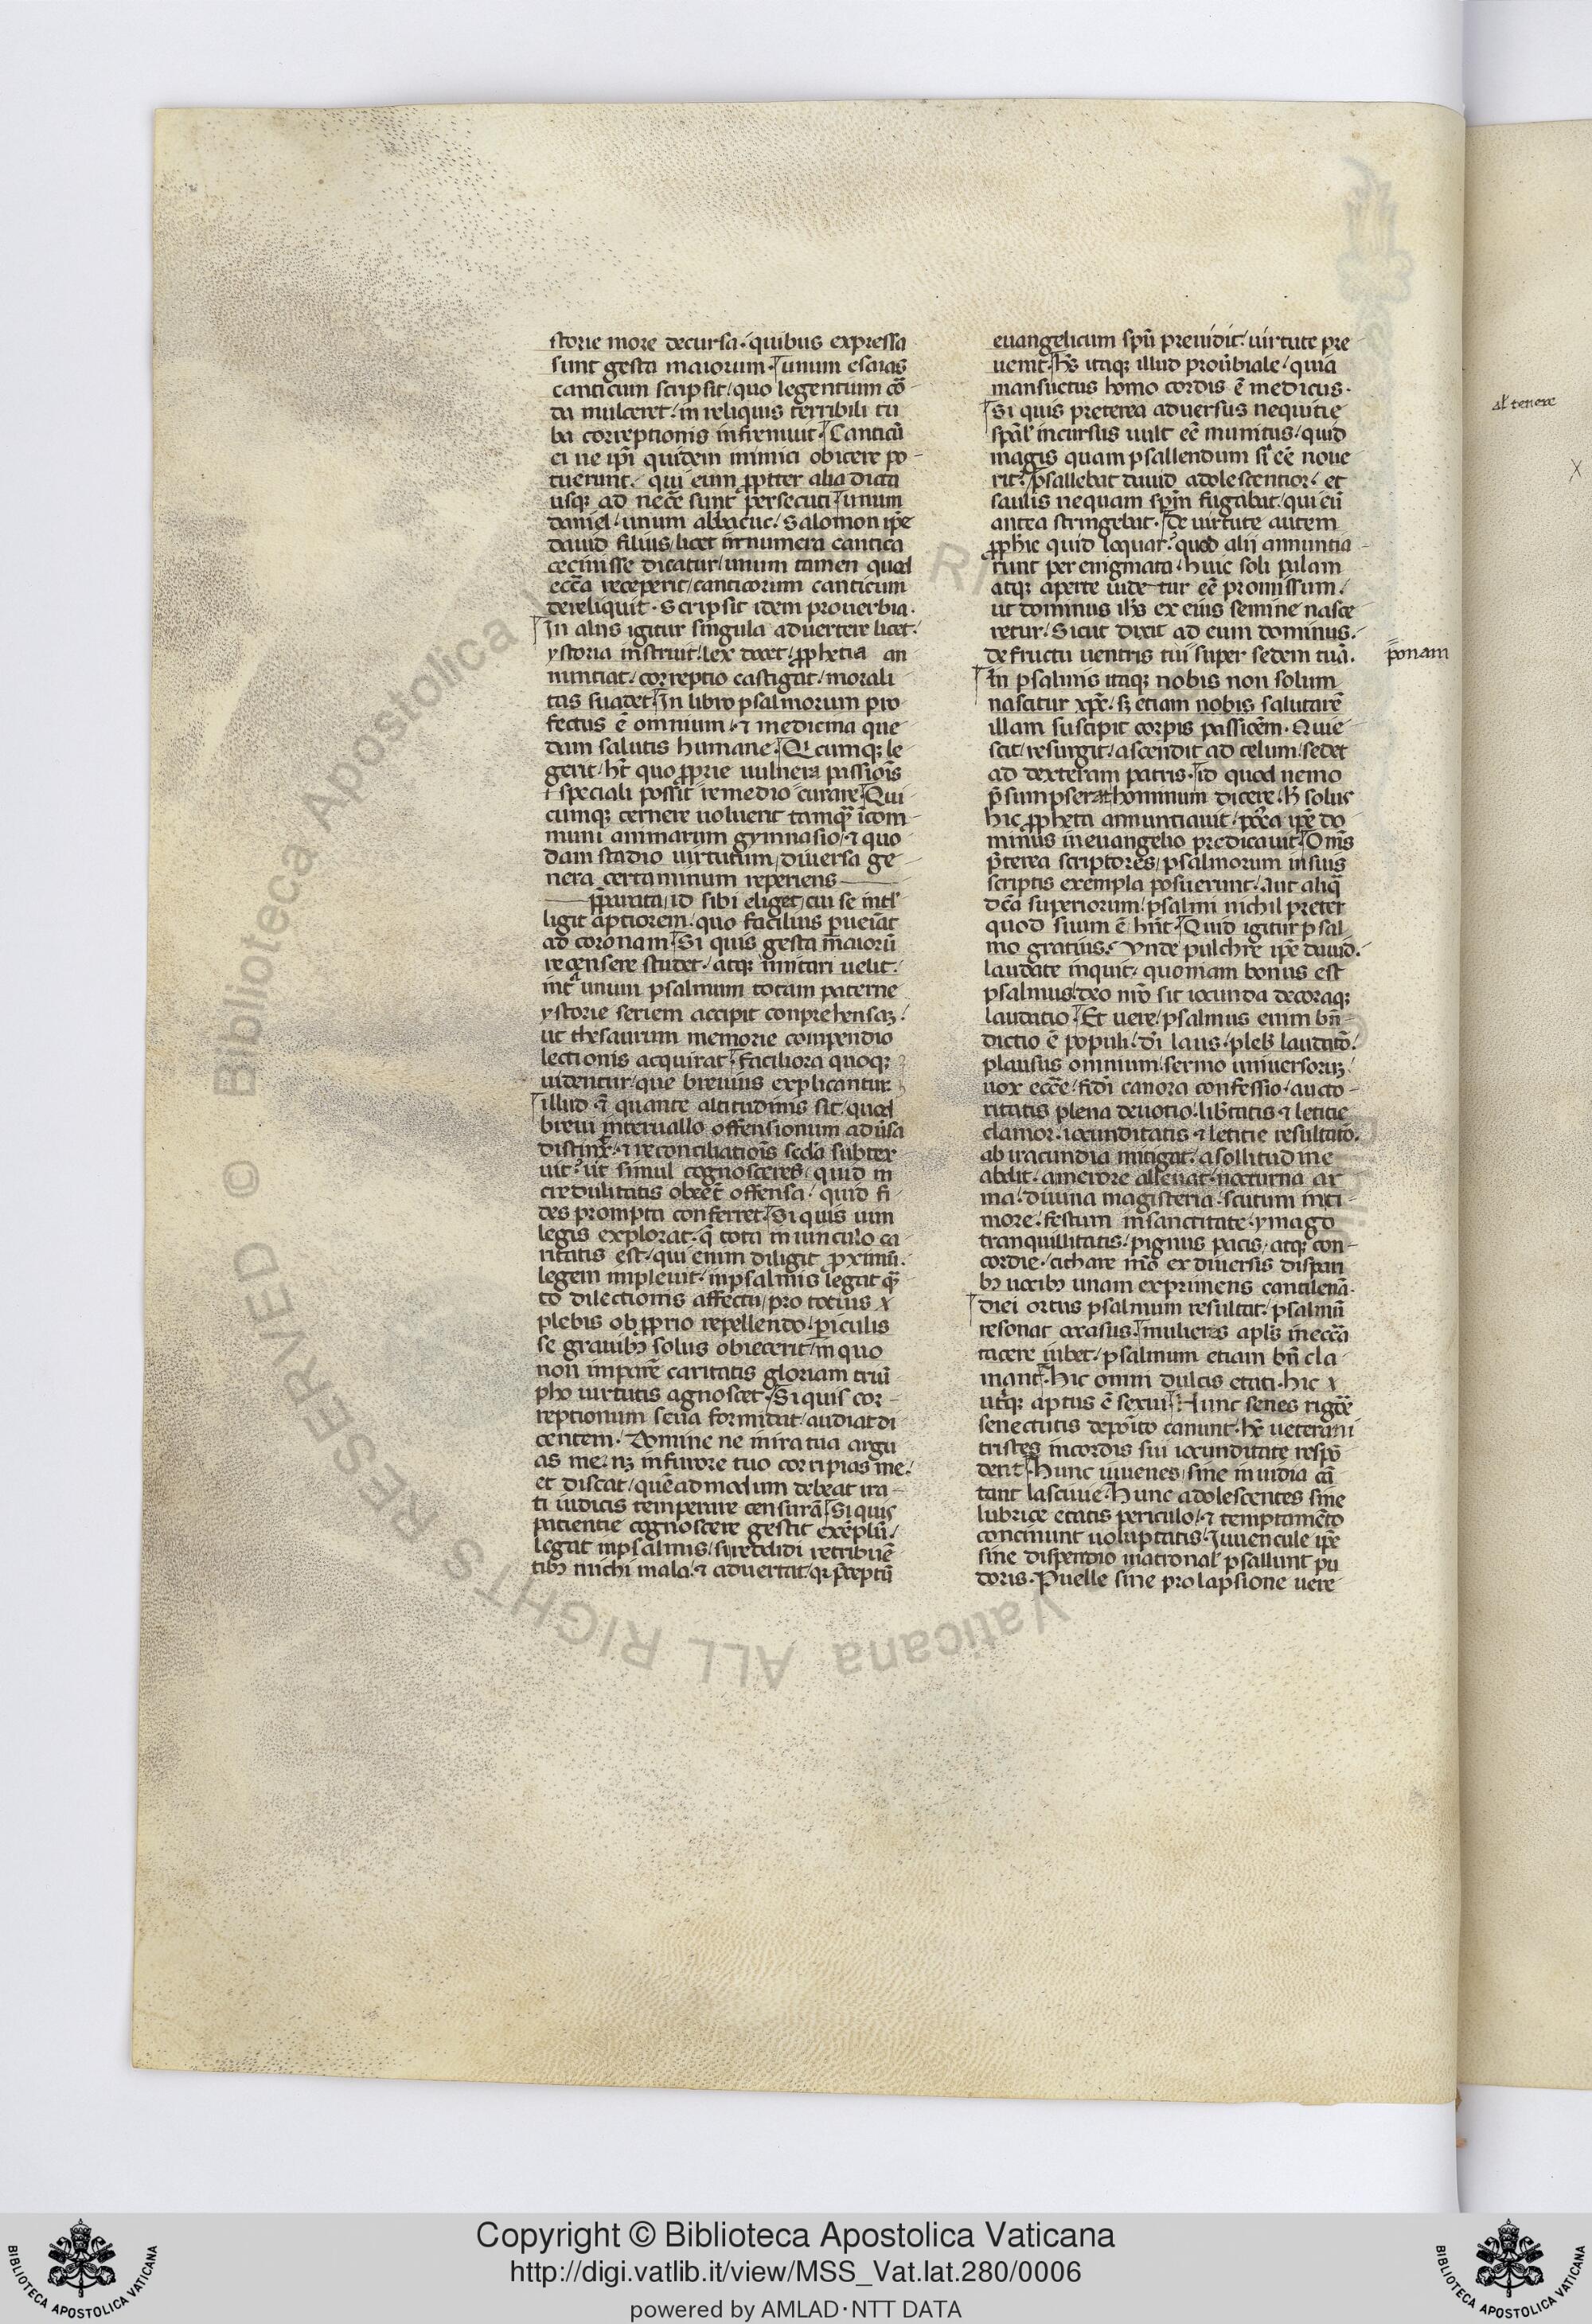 storie more decursa · quibus expressa
sunt gesta maiorum · unum esaias
canticum scripsit / quo legentum cō
da mulceret / in reliquis terribili tu
ba correptionis infremuit · Canticū
ei ne ip̄i quidem inimici obicere po
tuerunt · qui eum ꝓpter alia dicta
usqꝫ ad necē sunt persecuti · unum
daniel / unum abbacuc / Salomon ip̄e
dauid filius / licet innumera cantica
cecinisse dicatur / unum tamen quod
ecc̄a receperit / canticorum canticum
dereliquit · Scripsit idem prouerbia ·
In aliis igitur singula aduertere licet ·
ystoria instruit / lex docet / ꝓphetia an
nuntiat / correptio castigat / morali
tas suadet · In libro psalmorum pro
fectus ē omnium / ⁊ medicina que
dam salutis humane · Qcumqꝫ le
gerit / hꝫ quo ꝓprie uulnera passiōis
speciali possit remedio curare · Qui
cumqꝫ cernere uoluerit tamqꝫ ī com
muni animarum gymnasio / ⁊ quo
dam stadio uirtutum / diuersa ge
nera certaminum reperiens
p̄parata / id sibi eliget / cui se intl̄
ligit aptiorem / quo facilius ꝑueiat
ad coronam · Si quis gesta maiorū
recensere studet / atqꝫ imitari uelit
int̄ unum psalmum totam paterne
ystorie seriem accipit conprehensaꝫ
ut thesaurum memorie compendio
lectionis acquirat · faciliora quoqꝫ
uidentur / que breuius explicantur
illud ⁊ quante altitudinis sit / quod
breui interuallo offensionum adūsa
distinx̄ / ⁊ reconciliatiōis sedā subtex
uit / ut simul cognosceres / quid in
credulitatis obeēt offensa / quid fi
des prompta conferret · Si quis uim
legis explorat · q̄ tota in uinculo ca
ritatis est / qui enim diligit proximū ·
legem impleuit / in psalmis legat qꝫ
to dilectionis affectu / pro totius
plebis obꝓprio repellendo / ꝑiculis
se grauibꝫ solus obiecerit / in quo
non imparē caritatis gloriam triū
pho uirtutis agnoscet · Si quis cor
reptionum seua formidat / audiat di
centem · Domine ne in ira tua argu
as me / nꝫ in furore tuo corripias me ·
et discat / quē ad modum debeat ira
ti iudicis temperare censurā · Si quis
patientie cognoscere gestit exēplū ·
legat in psalmis / si reddidi retribuē
tibꝫ michi mala / ⁊ aduertat / qꝫ p̄ceptū
euangelicum sp̄u preuidit / uirtute pre
uenit · Hꝫ itaqꝫ illud prouībiale / quia
mansuetus homo cordis ē medicus ·
Si quis preterea aduersus nequitie
sp̄al̄ incursus uult eē munitus / quid
magis quam psallendum si eē noue
rit / psallebat dauid adolescentior / et
saulis nequam sp̄m fugabat / qui eū
antea stringebat · De uirtute autem
ꝓphie quid loquar / quod alii annuntia
runt per enigmata / huic soli palam
atqꝫ aperte uidetur eē promissum ·
ut dominus ih̄s ex eius semine nasce
retur / Sicut dixit ad eum dominus ·
de fructu uentris tui super sedem tuā ·
ponam
In psalmis itaqꝫ nobis non solum
nascitur xp̄c · sꝫ etiam nobis salutarē
illam suscipit corꝑis passiōem · Quie
scit / resurgit / ascendit ad celum / sedet
ad dexteram patris · id quod nemo
p̄sumpserat hominum dicere / H̄ solus
hic ꝓpheta annuntiauit / postea ip̄e do
minus in euangelio predicauit · Oms
p̄terea scriptores / psalmorum in suis
scriptis exempla posuerunt / aut aliq̄
dc̄a superiorum / psalmi nichil preter
quod suum ē hn̄t · Quid igitur psal
mo gratius · Vnde pulchre ip̄e dauid ·
laudate inquit / quoniam bonus est
psalmus / deo nr̄o sit iocunda decoraqꝫ
laudatio · Et uere / psalmus enim bn̄
dictio ē populi / dī laus / plebꝭ laudatō ·
plausus omnium / sermo uniuersorꝫ
uox ecc̄e / fidī canora confessio / aucto
ritatis plena deuotio / lib̄tatis ⁊ letitie
clamor / iocunditatis ⁊ letitie resultatō ·
ab iracundia mitigat / a sollitudine
abdit / a merore alleuat · nocturna ar
ma / diuina magisteria / scutum in ti
more / festum in sanctitate / ymago
tranquillitatis / pignus pacis / atqꝫ con
cordie / cithare mō ex diuersis dispari
bꝫ uocibꝫ unam exprimens cantilenā ·
Diei ortus psalmum resultat / psalmū
resonat occasus · mulieres apl̄s in ecc̄a
tacere iubet / psalmum etiam bn̄ cla
mant · hic omni dulcis etati · hic
utr̄qꝫ aptus ē sexui · Hunc senes
senectutis depōito canunt · hc̄ ueterani
tristes in cordis sui iocunditate respō
dent · hunc iuuenes / sine inuidia cā
tant lasciuie · hunc adolescentes sine
lubrice etatis periculo / ⁊ temptamēto
concinunt uoluptatis · Iuuencule ip̄e
sine dispendio matronal̄ psallunt pu
doris · Puelle sine prolapsione uere
al̄ tenere
X
Copyright © Biblioteca Apostolica Vaticana
http://digi.vatlib.it/view/MSS_Vat.lat.280/0006
powered by AMLAD·NTT DATA
BIBLIOTECA APOSTOLICA VATICANA
BIBLIOTECA APOSTOLICA VATICANA
© Biblioteca Apostolica Vaticana ALL RIGHTS RESERVED